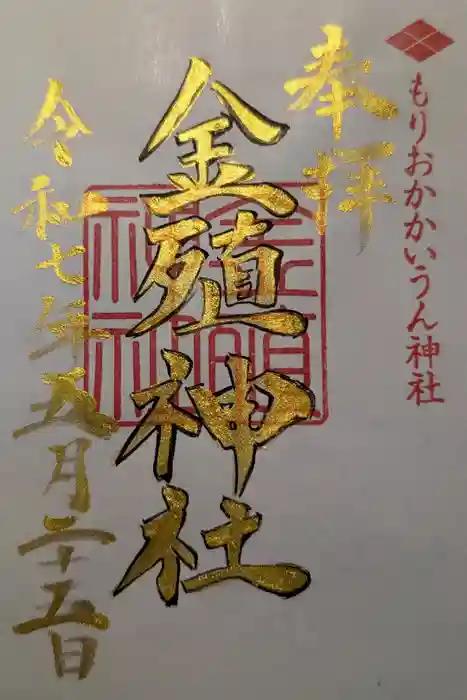 もりおかかいうん神社
奉拝
金殖神社
令和七年五月二十五日